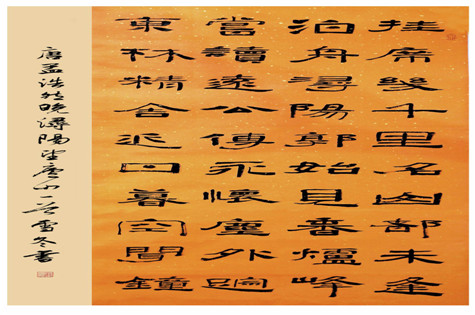 挂席幾千里名山都未逢
泊舟潯陽郭始見香爐峰
嘗讀遠公傳永懷塵外
東林精舍近日暮空聞鐘
唐孟浩然晚潯陽望廬山一首雪冬書